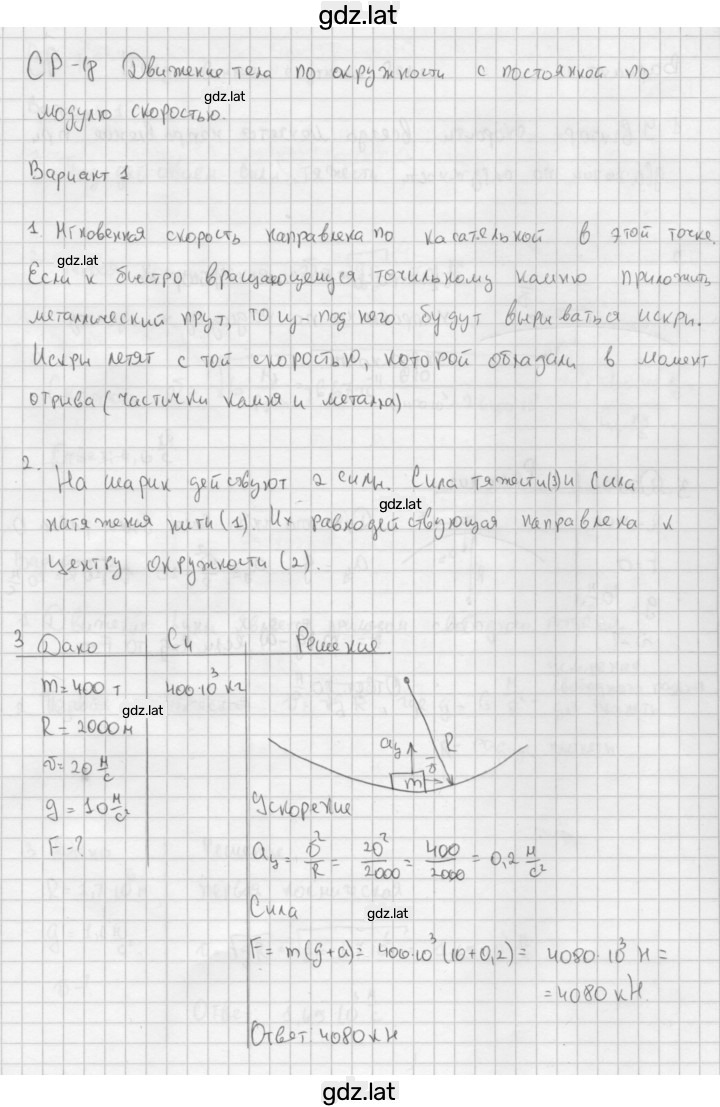 gdz.lat
СР-18 Движение тела по окружности с постоянной по
gdz.lat
модулю скоростью.
Вариант 1
1 Мгновенная скорость направлена по касательной в этой точке.
gdz.lat
Если к быстро вращающемуся точильному камню приложить
металлический прут, то из-под него будут вырываться искри.
Искри летят с той скоростью, которой обладали в момент
отрива (частички камня и металла)
2.
На шарик действуют 2 сили. Сила тяжести(3) и сила
gdz.lat
натяжения нити (1). Их равнодействующая направлена к
центру окружности (2).
3 Дано Си Решение
m=400 т 400·10³ кг
gdz.lat
R=2000м
υ=20 м/с
g=10 м/с²
F-?
aу R
υ
m
Ускорение
aу = υ²/R = 20²/2000 = 400/2000 = 0,2 м/с²
Сила
gdz.lat
F= m(g+a)= 400·10³(10+0,2)= 4080·10³ Н =
=4080 кН.
Ответ: 4080 кН
gdz.lat